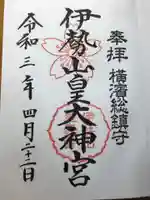 奉拝 横濱総鎮守
伊勢山皇大神宮
令和三年四月二十二日